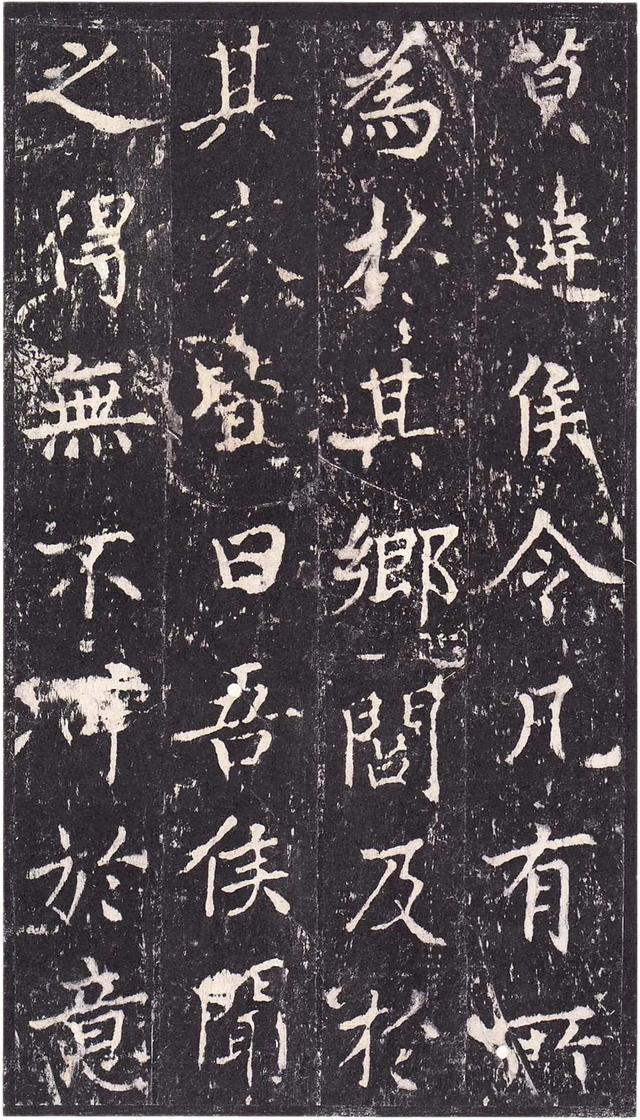 莫違侯令凡有所
為於其鄉閭及於
其家皆曰吾侯聞
之得無不於意